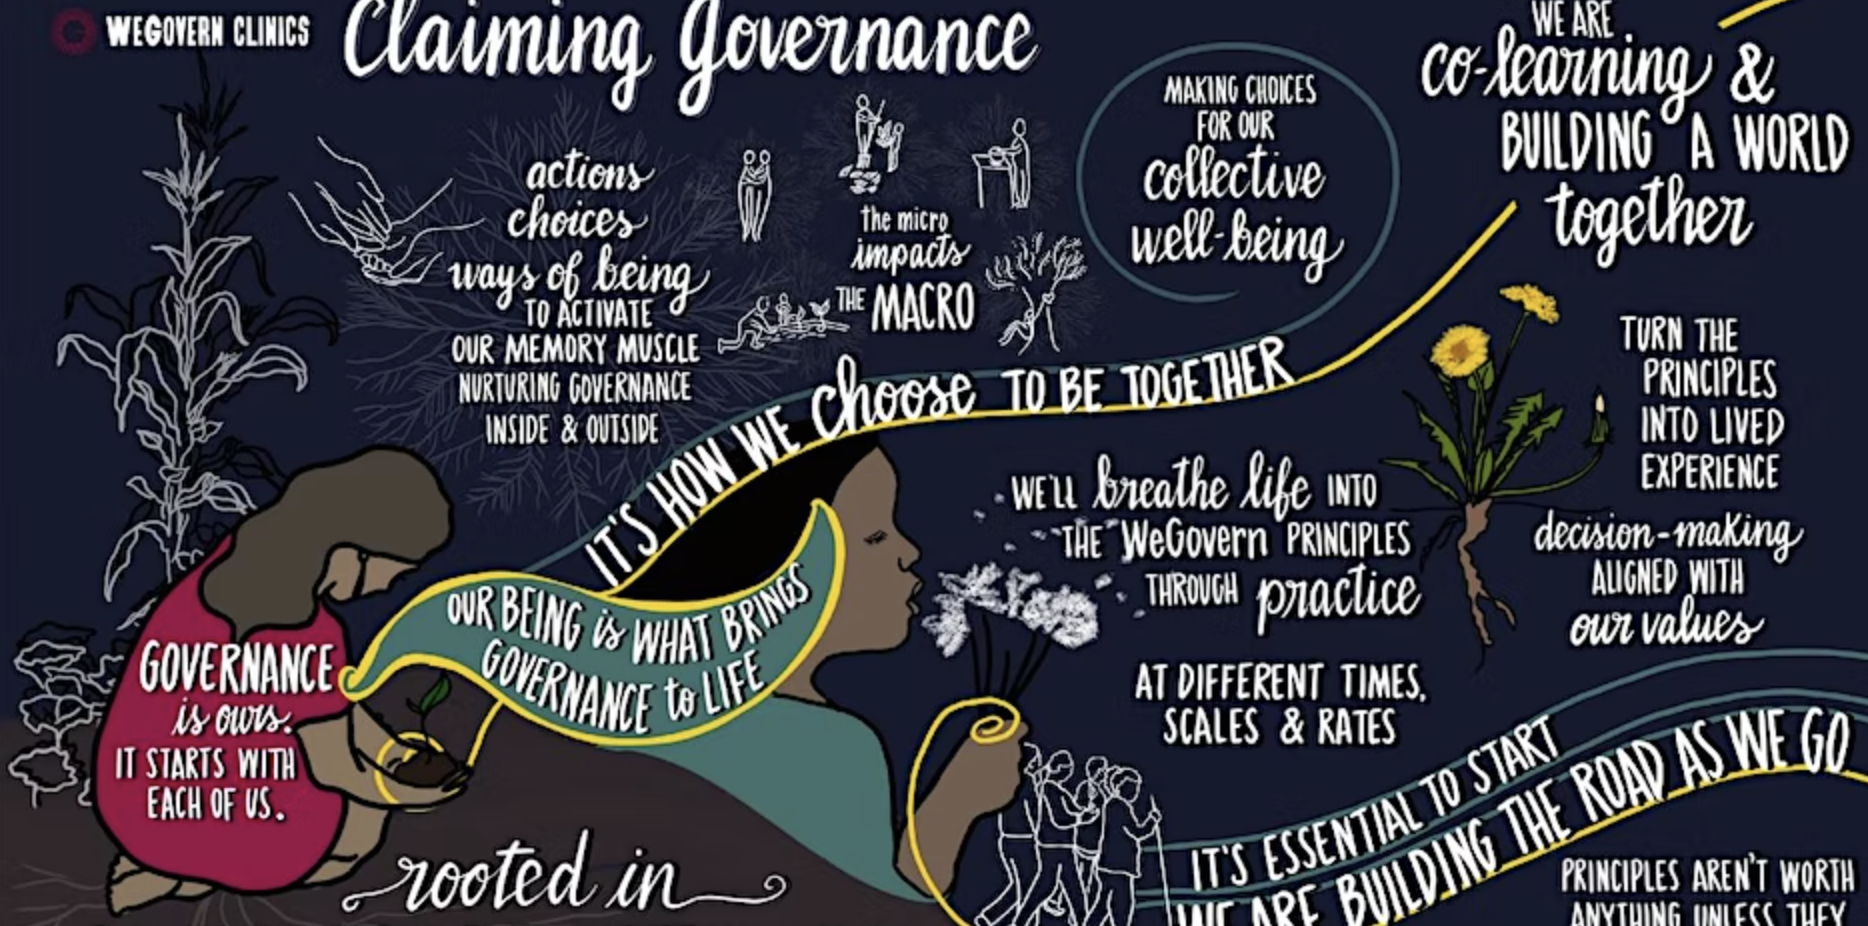 WEGOVERN CLINICS
Claiming Governance
actions
choices
ways of being
TO ACTIVATE
OUR MEMORY MUSCLE
NURTURING GOVERNANCE
INSIDE & OUTSIDE
the micro
impacts
THE MACRO
MAKING CHOICES
FOR OUR
collective
well-being
WE ARE
co-learning &
BUILDING A WORLD
together
IT'S HOW WE choose TO BE TOGETHER
TURN THE
PRINCIPLES
INTO LIVED
EXPERIENCE
decision-making
ALIGNED WITH
our values
WE'LL breathe life INTO
THE WeGovern PRINCIPLES
THROUGH practice
AT DIFFERENT TIMES,
SCALES & RATES
OUR BEING is WHAT BRINGS
GOVERNANCE to LIFE
GOVERNANCE
is ours.
IT STARTS WITH
EACH OF US.
rooted in
IT'S ESSENTIAL TO START
WE ARE BUILDING THE ROAD AS WE GO
PRINCIPLES AREN'T WORTH
ANYTHING UNLESS THEY